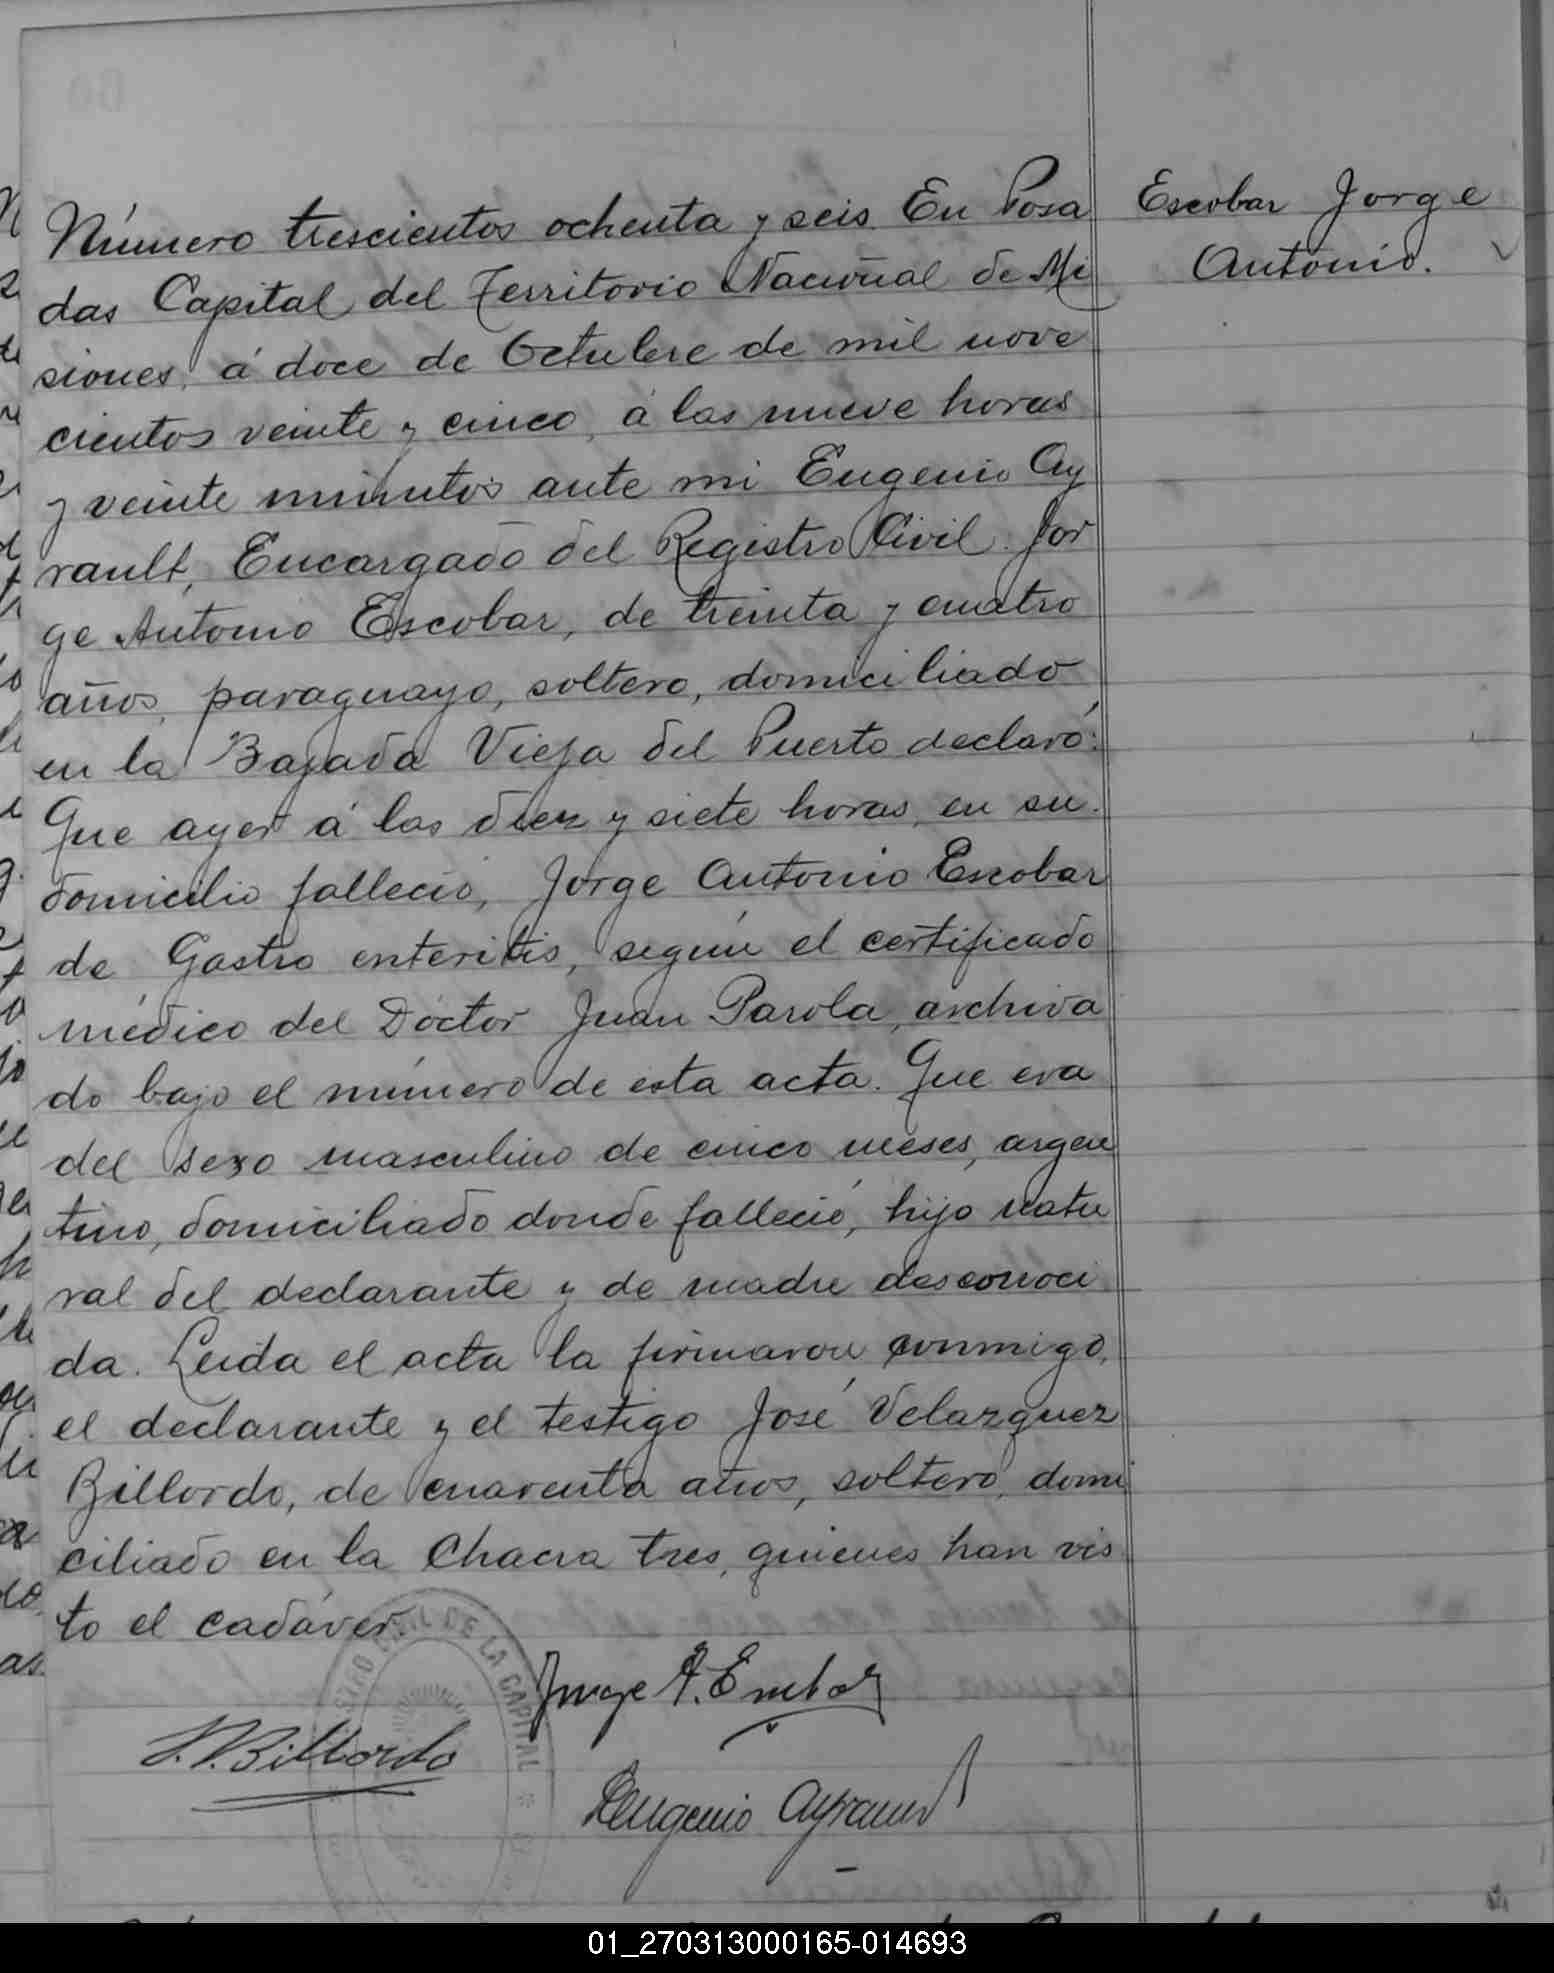 Número trescientos ochenta y seis. En Posa
das Capital del Territorio Nacional de Mi
siones, á doce de Octubre de mil nove
cientos veinte y cinco, á las nueve horas
y veinte minutos ante mi Eugenio Ay
rault, Encargado del Registro Civil. Jor
ge Antonio Escobar, de treinta y cuatro
años, paraguayo, soltero, domiciliado
en la Bajada Vieja del Puerto declaró:
Que ayer á las diez y siete horas, en su
domicilio falleció, Jorge Antonio Escobar
de Gastro enteritis, según el certificado
médico del Dóctor Juan Parola, archiva
do bajo el número de esta acta. Que era
del sexo masculino de cinco meses, argen
tino, domiciliado donde falleció, hijo natu
ral del declarante y de madre desconoci
da. Leida el acta la firmaron conmigo,
el declarante y el testigo José Velazquez
Billordo, de cuarenta años, soltero, domi
ciliado en la Chacra tres, quienes han vis
to el cadáver.
Escobar Jorge
Antonio.
Jorge A. Escobar
J. V. Billordo
Eugenio Ayrault
CIVIL DE LA CAPITAL
01_270313000165-014693